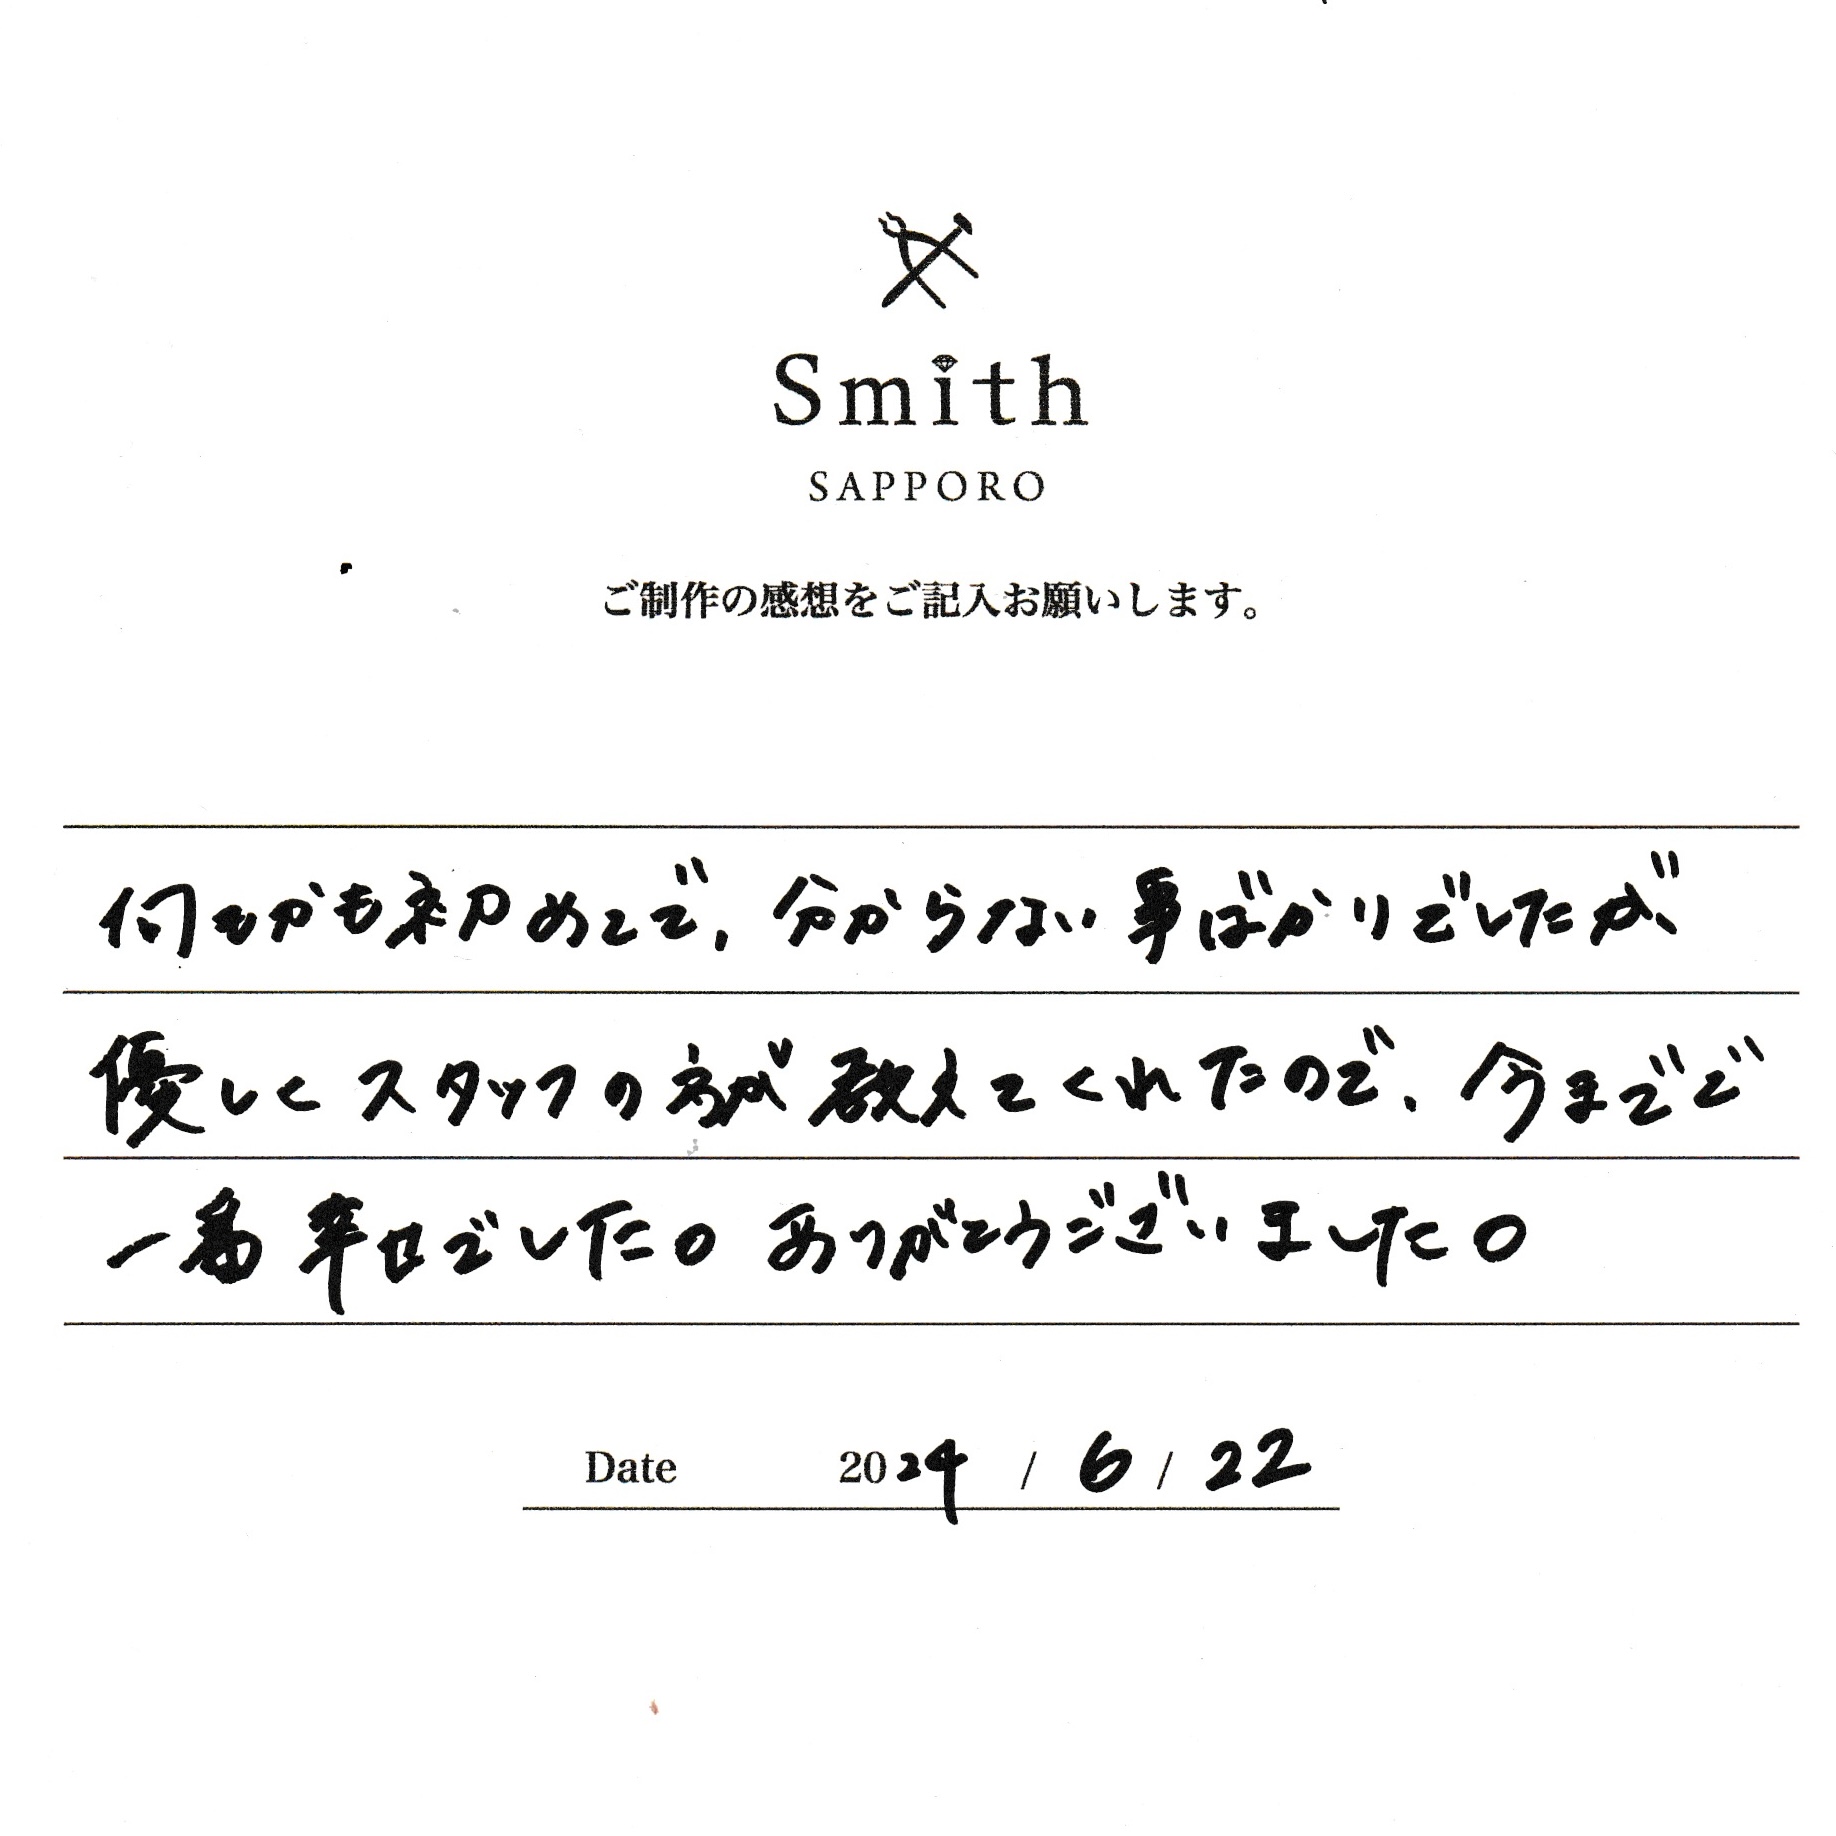 Smith
SAPPORO
ご制作の感想をご記入お願いします。
何もかも初めてで、分からない事ばかりでしたが、
優しくスタッフの方が教えてくれたので、今までで
一番幸せでした。ありがとうございました。
Date 2024 / 6 / 22